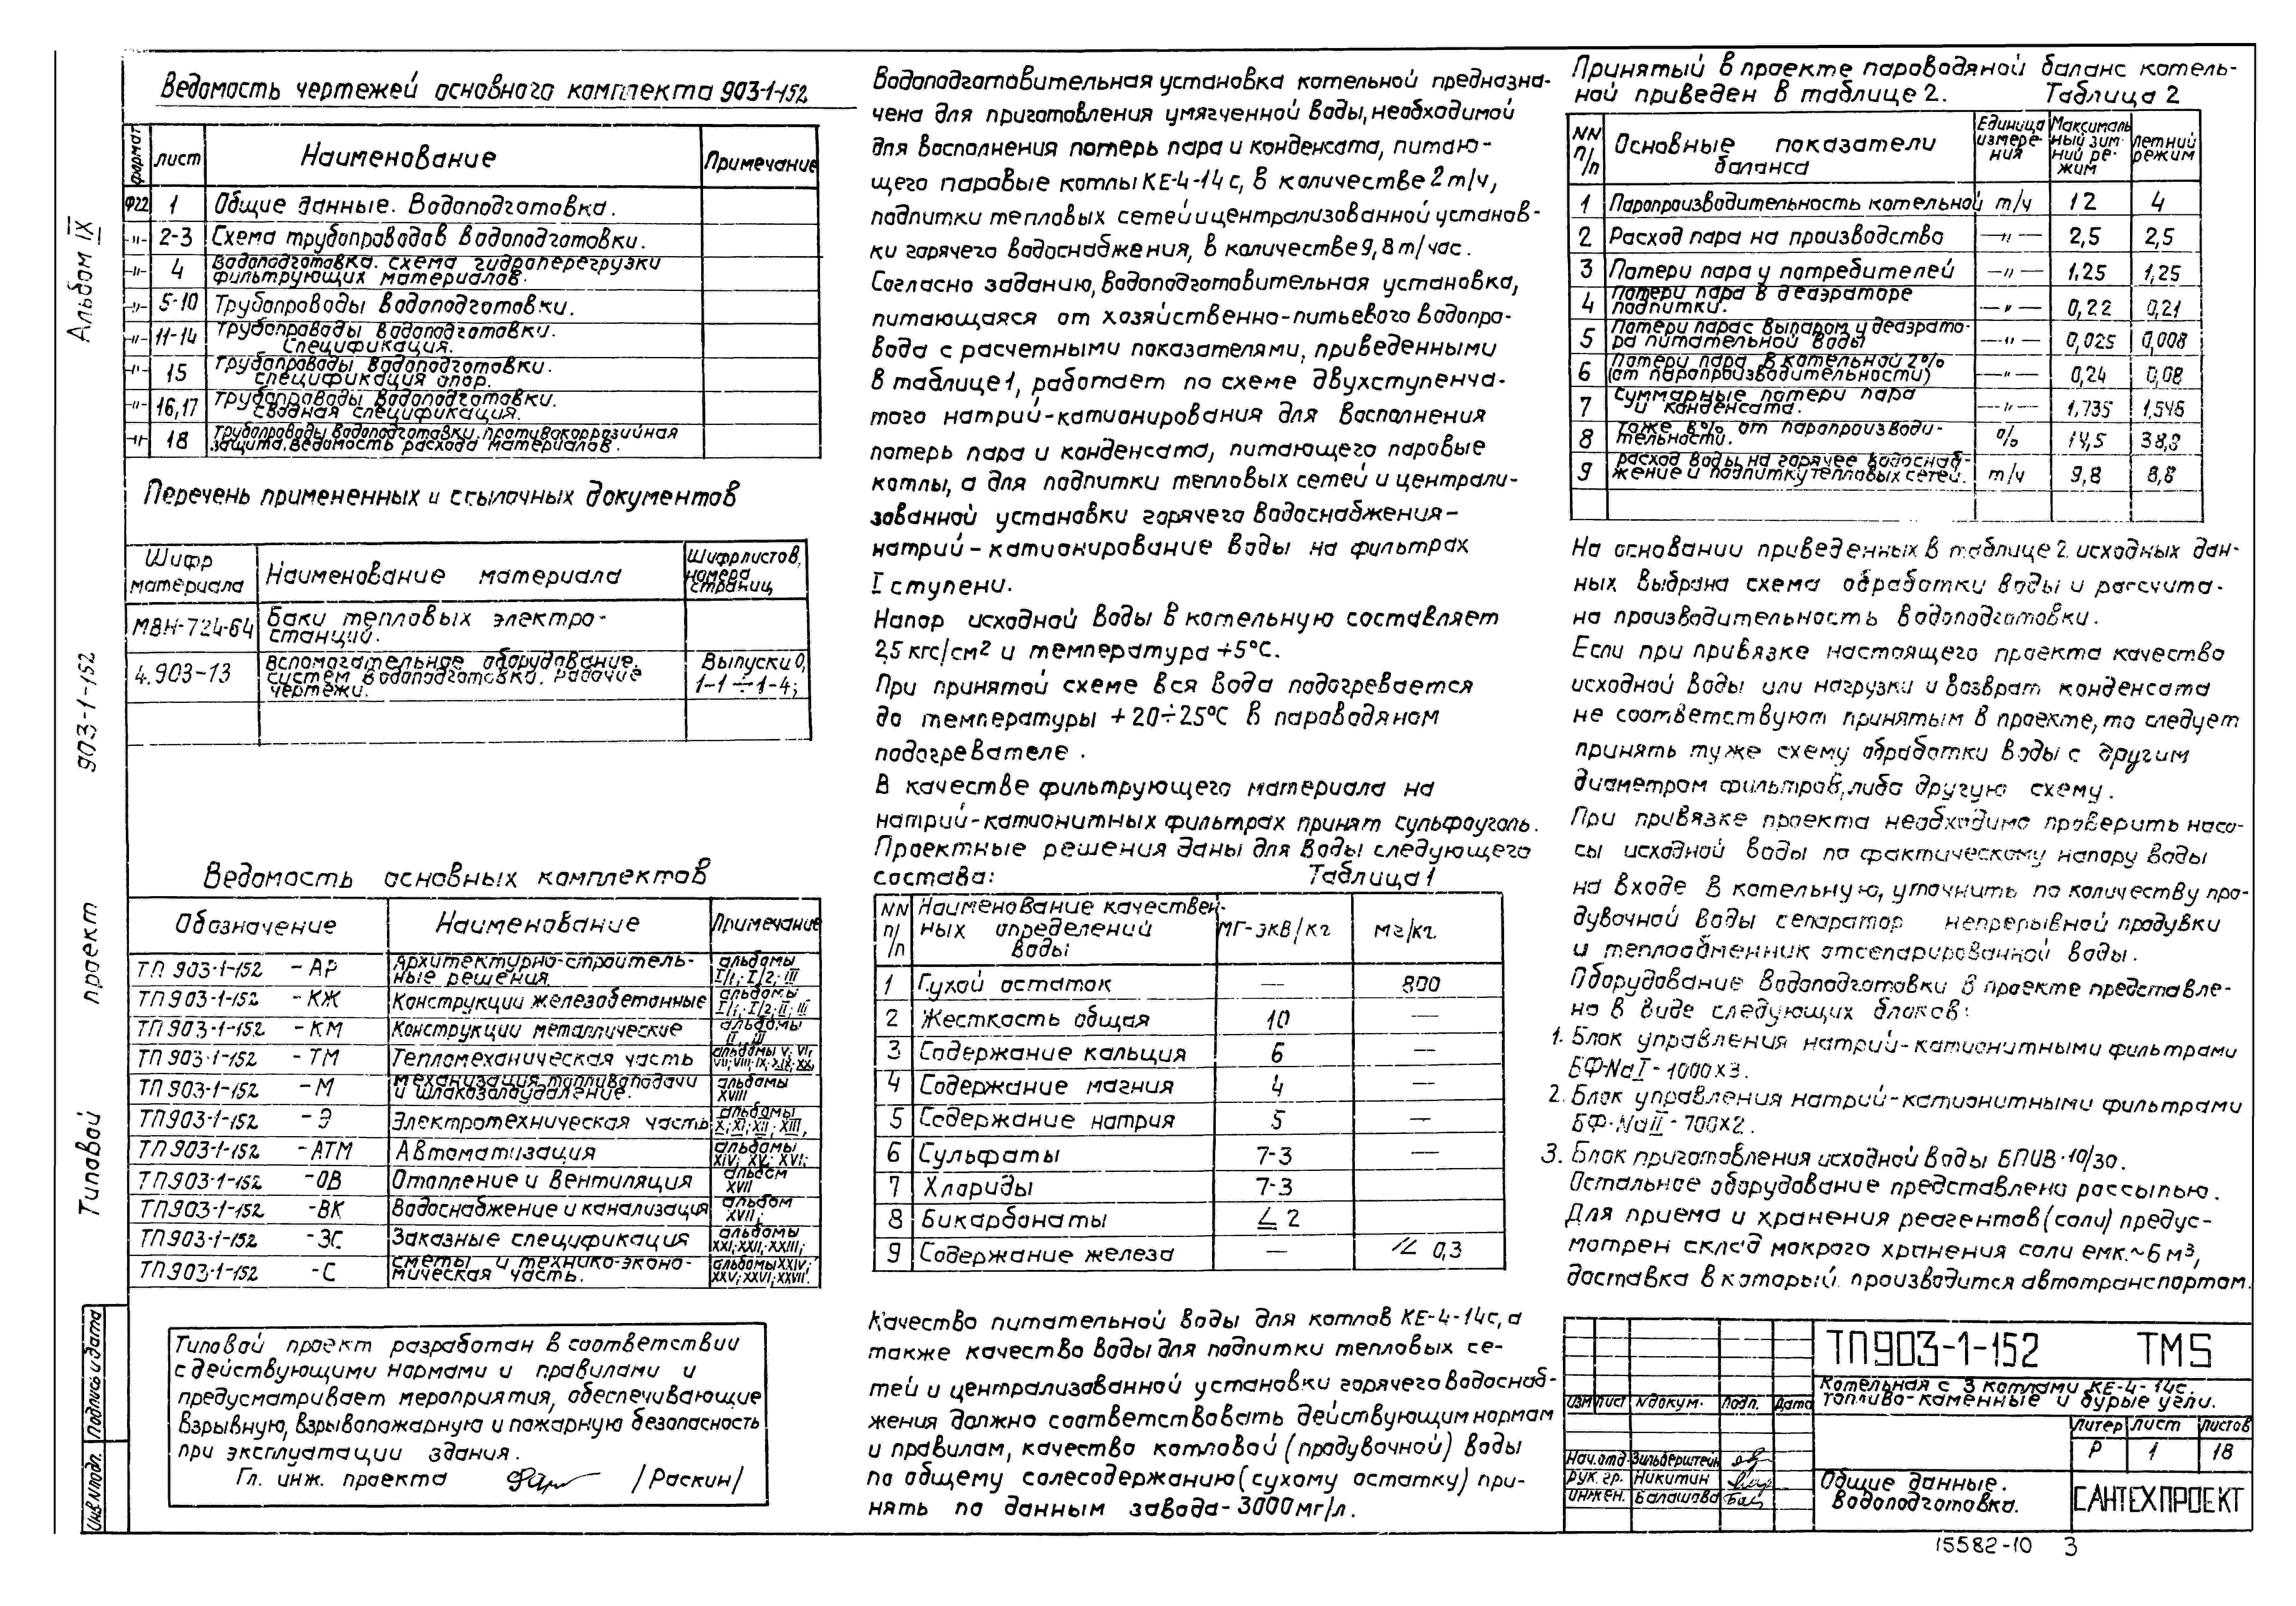 Ведомость чертежей основного комплекта 903-1-152
формат лист Наименование Примечание
Ф22 1 Общие данные. Водоподготовка.
-"- 2-3 Схема трубопроводов водоподготовки.
-"- 4 Водоподготовка. схема гидроперегрузки
фильтрующих материалов.
-"- 5-10 Трубопроводы водоподготовки.
-"- 11-14 Трубопроводы водоподготовки.
Спецификация.
-"- 15 Трубопроводы водоподготовки.
спецификация опор.
-"- 16,17 Трубопроводы водоподготовки.
сводная спецификация.
-"- 18 Трубопроводы водоподготовки. противокоррозийная
защита. ведомость расхода материалов.
Перечень примененных и ссылочных документов
Шифр материала Наименование материала Шифр листов, номера страниц
МВН-724-64 Баки тепловых электро-
станций.
4.903-13 Вспомогательное оборудование.
систем водоподготовка. рабочие
чертежи.
Выпуски 0,
1-1÷1-4;
Ведомость основных комплектов
Обозначение Наименование Примечание
ТП 903-1-152 -АР Архитектурно-строитель-
ные решения. альбомы I/1; I/2; III
ТП 903-1-152 -КЖ Конструкции железобетонные альбомы I/1; I/2; II; III
ТП 903-1-152 -КМ Конструкции металлические альбомы II, III
ТП 903-1-152 -ТМ Тепломеханическая часть альбомы V; VI;
ТП 903-1-152 -М механизация топливоподачи
и шлакозолоудаление. альбомы XVIII
ТП 903-1-152 -Э Электротехническая часть альбомы X; XI; XII; XIII,
ТП 903-1-152 -АТМ Автоматизация альбомы XIV; XV; XVI;
ТП 903-1-152 -ОВ Отопление и вентиляция альбом XVII
ТП 903-1-152 -ВК Водоснабжение и канализация альбом XVII;
ТП 903-1-152 -ЗС Заказные спецификация альбомы XXI; XXII; XXIII;
ТП 903-1-152 -С сметы и технико-эконо-
мическая часть. альбомы XXIV; XXV; XXVI; XXVII.
Типовой проект разработан в соответствии
с действующими нормами и правилами и
предусматривает мероприятия, обеспечивающие
взрывную, взрывопожарную и пожарную безопасность
при эксплуатации здания.
Гл. инж. проекта /Раскин/
Альбом IX
903-1-152
Типовой проект
Подпись и дата
Инв.N подл.
Водоподготовительная установка котельной предназна-
чена для приготовления умягченной воды, необходимой
для восполнения потерь пара и конденсата, питаю-
щего паровые котлы КЕ-4-14с, в количестве 2 т/ч,
подпитки тепловых сетей и централизованной установ-
ки горячего водоснабжения, в количестве 9,8 т/час.
Согласно заданию, водоподготовительная установка,
питающаяся от хозяйственно-питьевого водопро-
вода с расчетными показателями, приведенными
в таблице 1, работает по схеме двухступенча-
того натрий-катионирования для восполнения
потерь пара и конденсата, питающего паровые
котлы, а для подпитки тепловых сетей и централи-
зованной установки горячего водоснабжения-
натрий-катионирование воды на фильтрах
I ступени.
Напор исходной воды в котельную составляет
2,5 кгс/см² и температура +5°С.
При принятой схеме вся вода подогревается
до температуры +20÷25°С в пароводяном
подогревателе.
В качестве фильтрующего материала на
натрий-катионитных фильтрах принят сульфоуголь.
Проектные решения даны для воды следующего
состава: Таблица 1
NN п/п Наименование качествен-
ных определений
воды МГ-экв/кг мг/кг.
1 Сухой остаток — 800
2 Жесткость общая 10 —
3 Содержание кальция 6 —
4 Содержание магния 4 —
5 Содержание натрия 5 —
6 Сульфаты 7-3 —
7 Хлориды 7-3
8 Бикарбонаты ∠ 2
9 Содержание железа — ∠ 0,3
Качество питательной воды для котлов КЕ-4-14с, а
также качество воды для подпитки тепловых се-
тей и централизованной установки горячего водоснаб-
жения должно соответствовать действующим нормам
и правилам, качество котловой (продувочной) воды
по общему солесодержанию (сухому остатку) при-
нять по данным завода-3000 мг/л.
Принятый в проекте пароводяной баланс котель-
ной приведен в таблице 2. Таблица 2
NN п/п Основные показатели баланса Единица измере-ния Максималь ный зим-ний ре-жим летний режим
1 Паропроизводительность котельной т/ч 12 4
2 Расход пара на производство —"— 2,5 2,5
3 Потери пара у потребителей —"— 1,25 1,25
4 Потери пара в деаэраторе
подпитки. —"— 0,22 0,21
5 Потери пара с выпаром у деаэрато-
ра питательной воды —"— 0,025 0,008
6 Потери пара в котельной 2%
(от паропроизводительности) —"— 0,24 0,08
7 суммарные потери пара
и конденсата. —"— 1,735 1,546
8 тоже в % от паропроизводи-
тельности. % 14,5 38,8
9 расход воды на горячее водоснаб-
жение и подпитку тепловых сетей. т/ч 9,8 8,8
На основании приведенных в таблице 2 исходных дан-
ных выбрана схема обработки воды и рассчита-
на производительность водоподготовки.
Если при привязке настоящего проекта качество
исходной воды или нагрузки и возврат конденсата
не соответствуют принятым в проекте, то следует
принять ту же схему обработки воды с другим
диаметром фильтров, либо другую схему.
При привязке проекта необходимо проверить насо-
сы исходной воды по фактическому напору воды
на входе в котельную, уточнить по количеству про-
дувочной воды сепаратор непрерывной продувки
и теплообменник отсепарированной воды.
Оборудование водоподготовки в проекте представле-
но в виде следующих блоков:
1. Блок управления натрий-катионитными фильтрами
БФ-NaI-1000х3.
2. Блок управления натрий-катионитными фильтрами
БФ-NaII-700х2.
3. Блок приготовления исходной воды БПИВ-10/30.
Остальное оборудование представлено россыпью.
Для приема и хранения реагентов (соли) предус-
мотрен склад мокрого хранения соли емк.~6 м³,
доставка в который производится автотранспортом.
ТП903-1-152 ТМ5
Котельная с 3 котлами КЕ-4-14с.
Топливо-каменные и бурые угли.
изм лист Nдокум. Подп. Дата
Литер Лист Листов
Р 1 18
Нач.отд. Зильберштейн
рук. гр. Никитин
инжен. Балашова
Общие данные.
Водоподготовка.
САНТЕХПРОЕКТ
15582-10 3